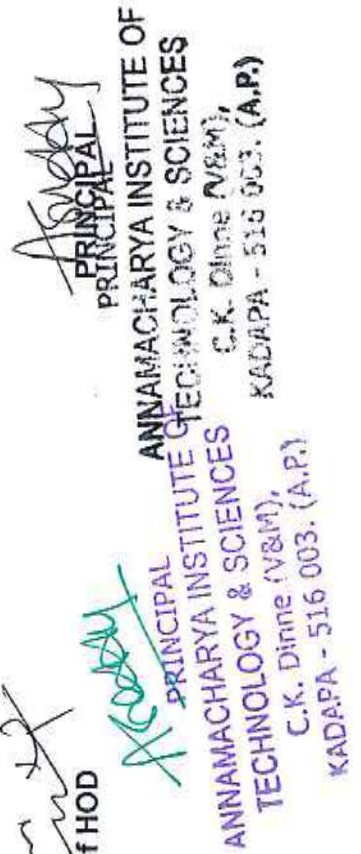 f HOD
PRINCIPAL
ANNAMACHARYA INSTITUTE OF
TECHNOLOGY & SCIENCES
C.K. Dinne (V&M),
KADAPA - 516 003. (A.P.)
PRINCIPAL
PRINCIPAL
ANNAMACHARYA INSTITUTE OF
TECHNOLOGY & SCIENCES
C.K. Dinne (V&M),
KADAPA - 516 003. (A.P.)